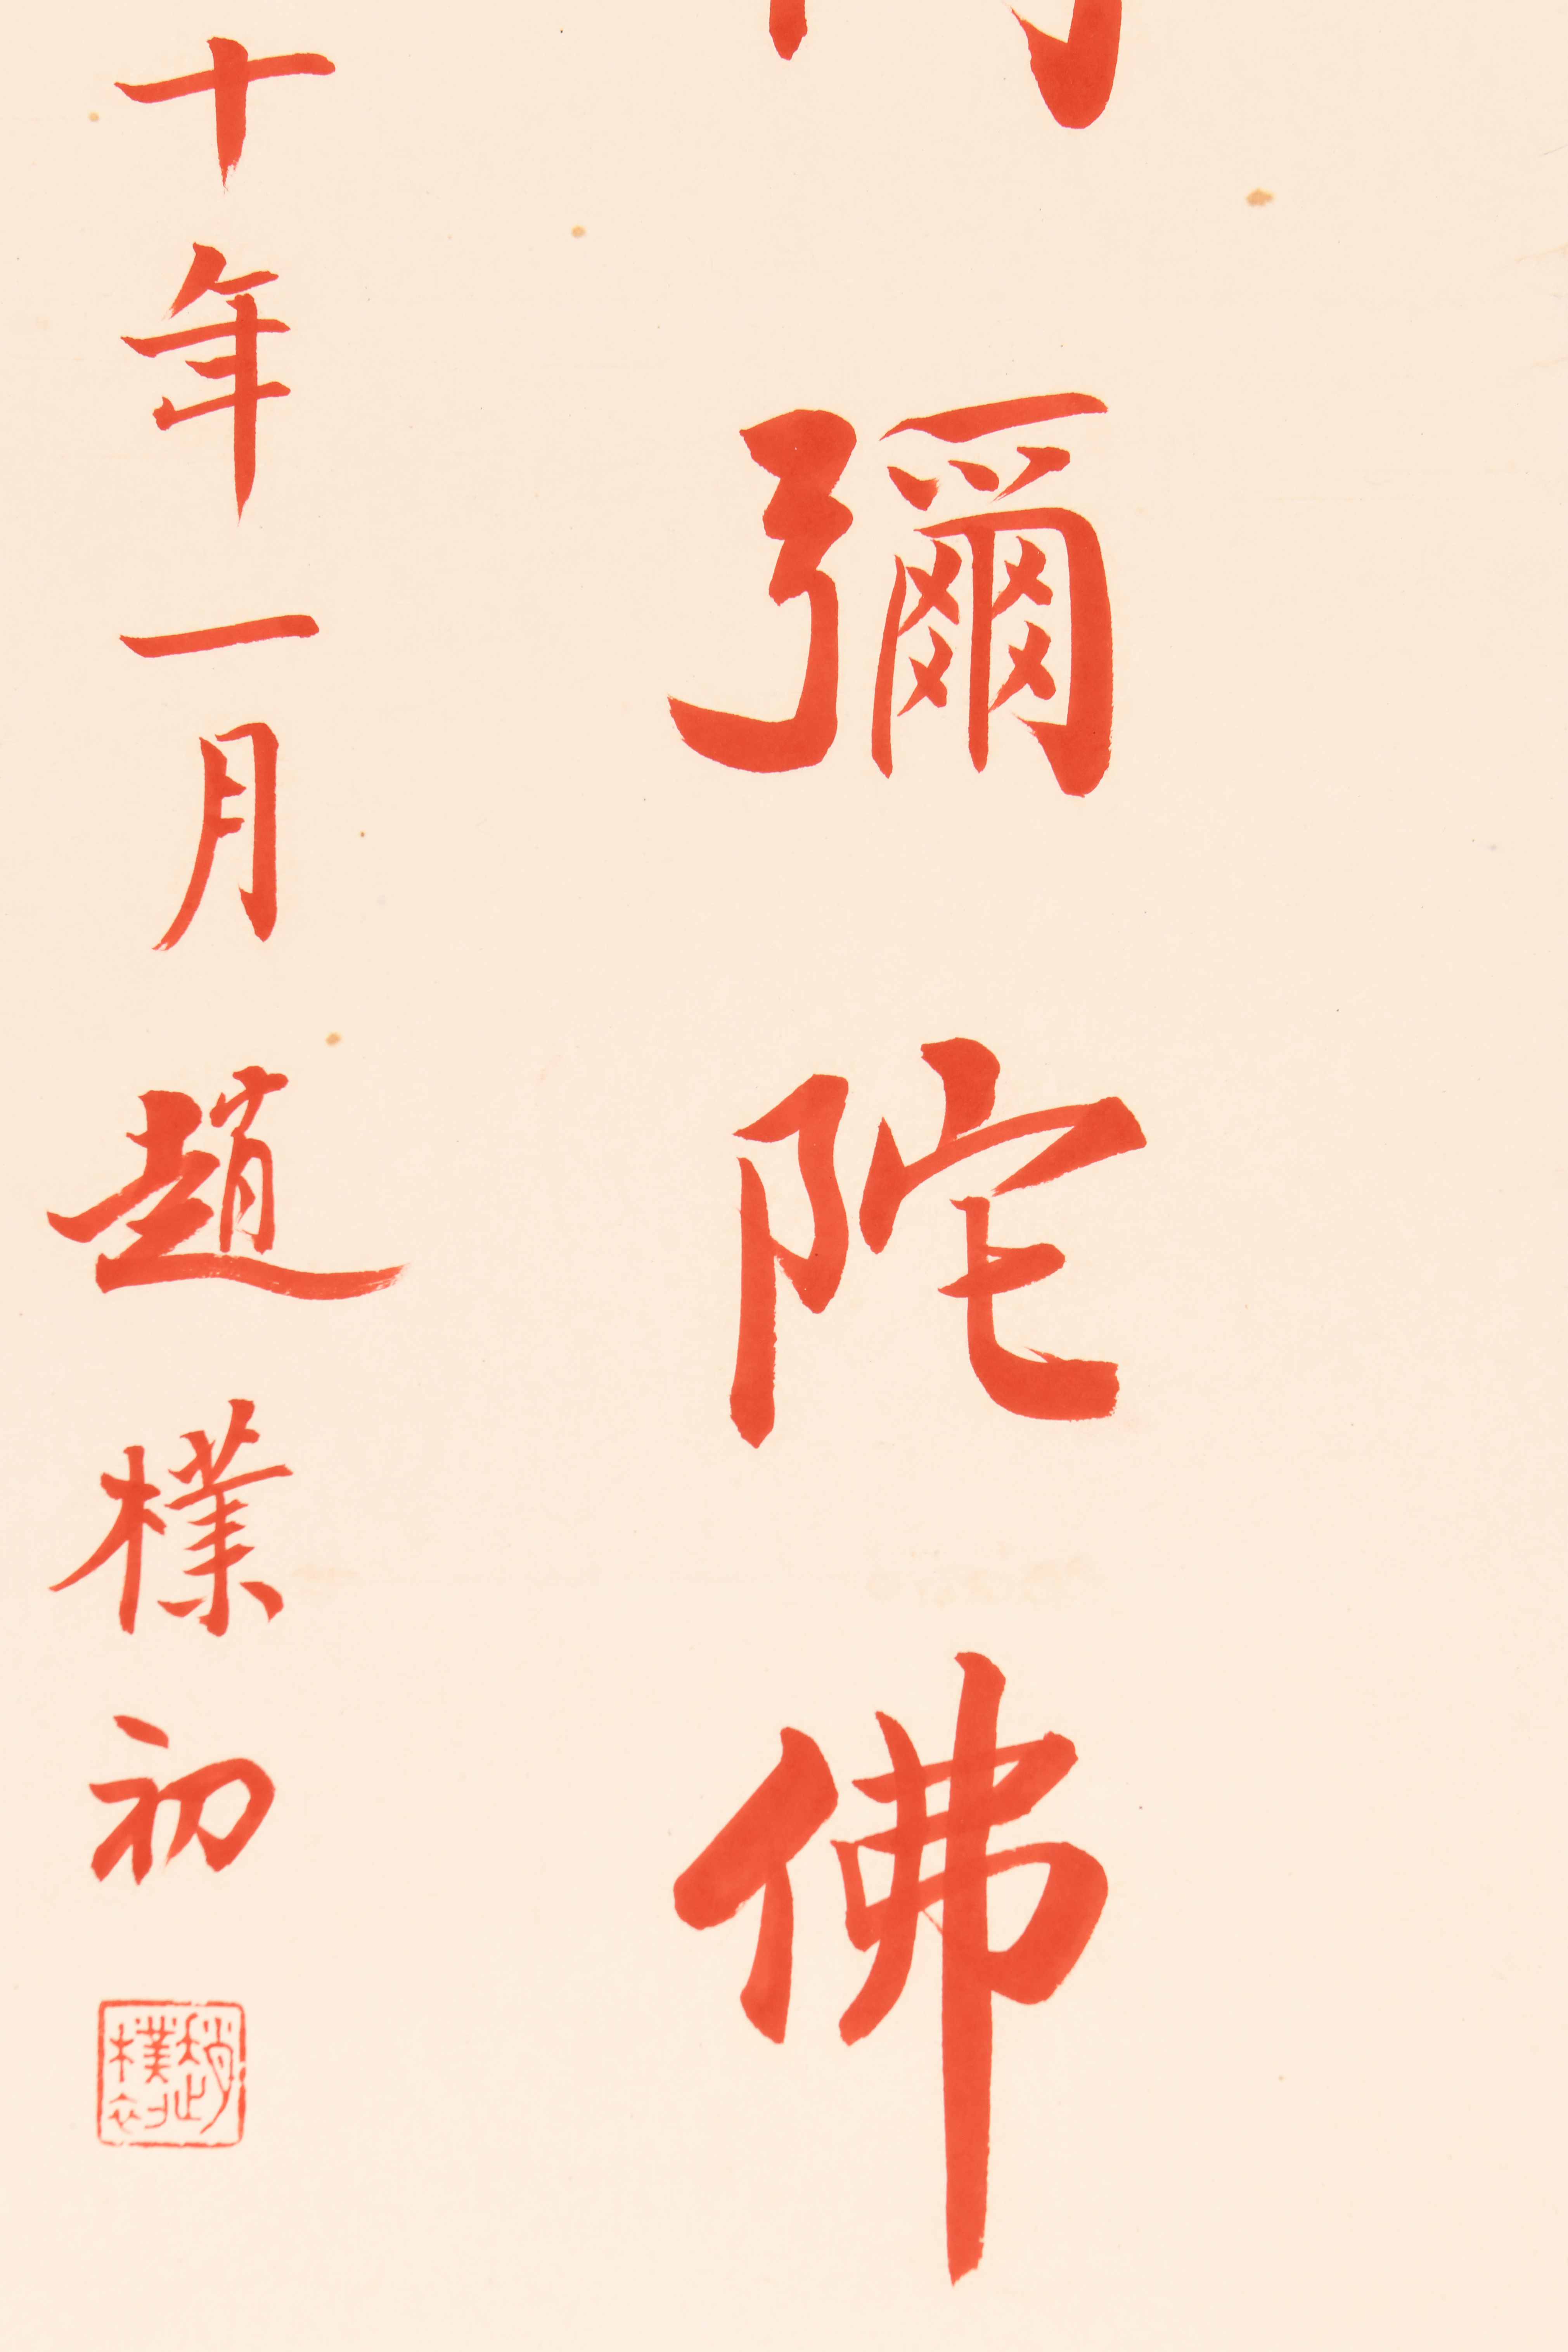 彌陀佛
十年一月趙樸初
趙樸初